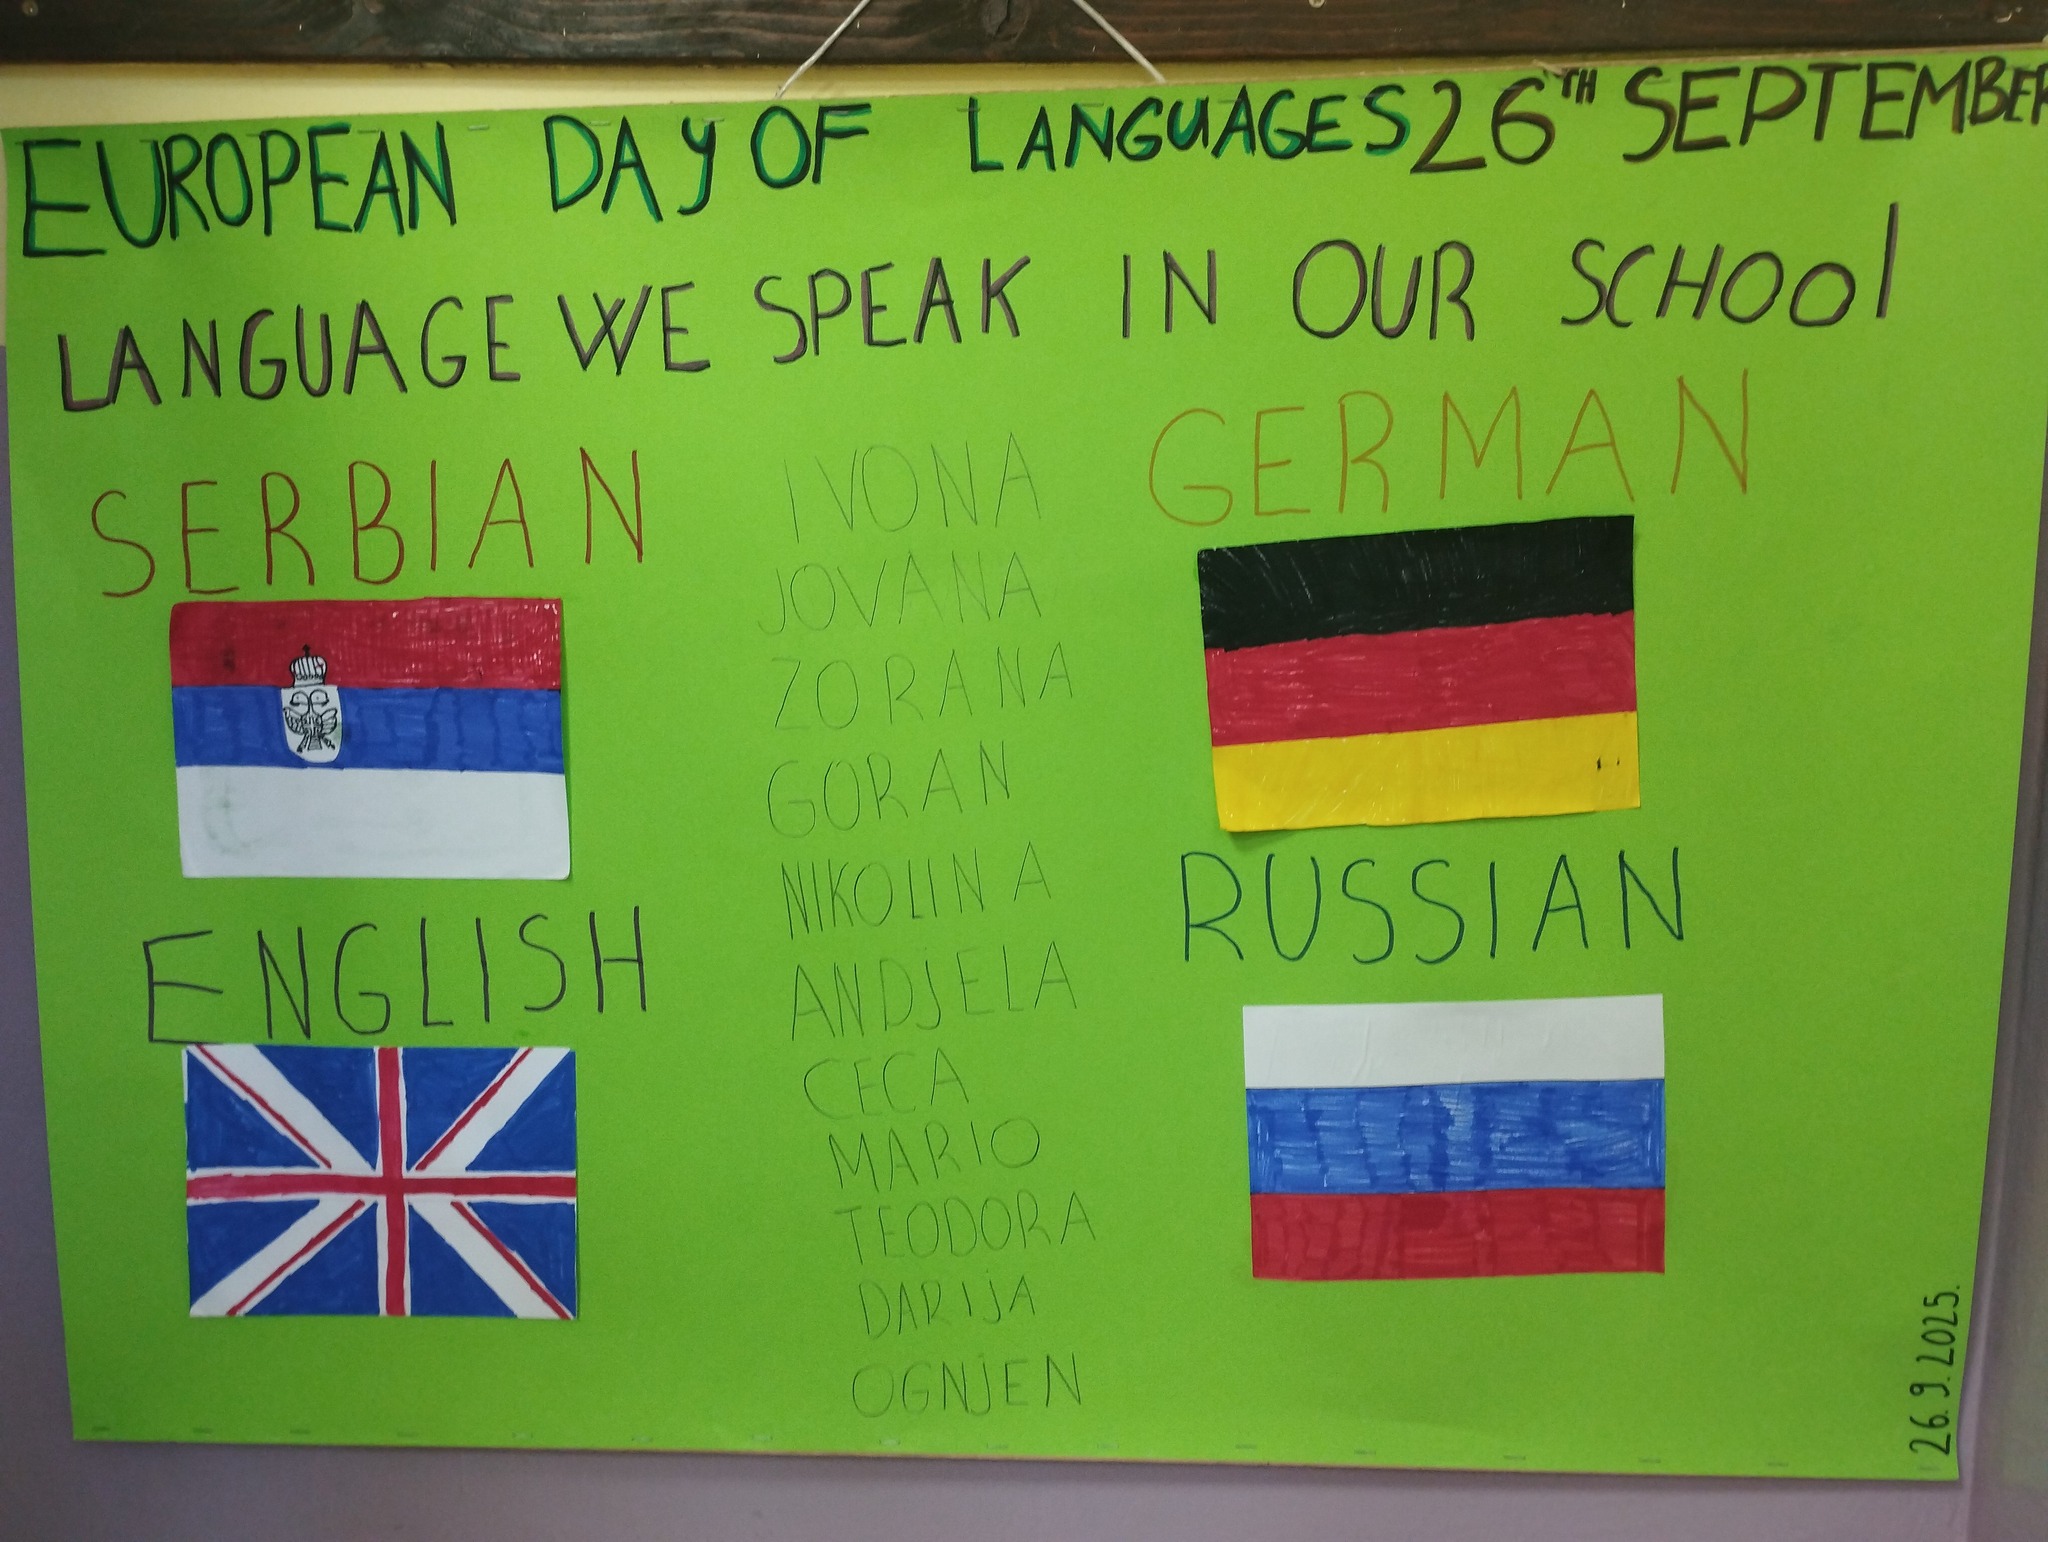 EUROPEAN DAY OF LANGUAGES 26TH SEPTEMBER
LANGUAGE WE SPEAK IN OUR SCHOOL
SERBIAN
ENGLISH
IVONA
JOVANA
ZORANA
GORAN
NIKOLINA
ANDJELA
CECA
MARIO
TEODORA
DARIJA
OGNJEN
GERMAN
RUSSIAN
26.9.2025.